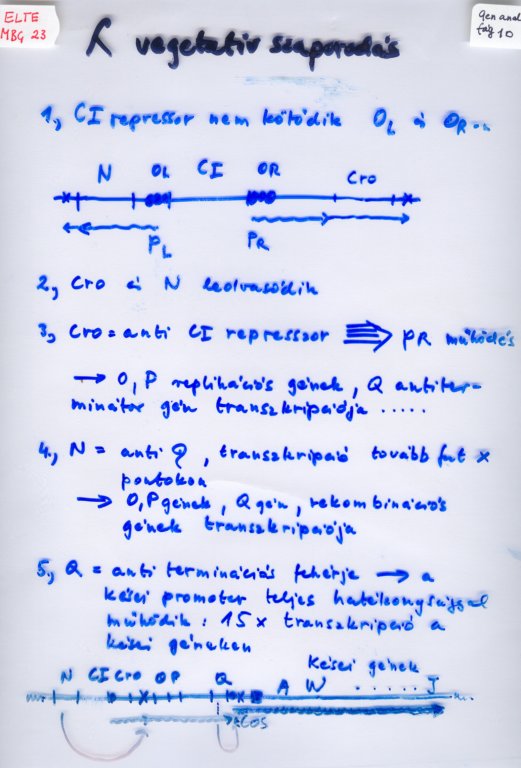 ELTE
MBG 23
gen anal
fág 10
λ vegetatív szaporodás
1, CI repressor nem kötődik OL és OR-n
N OL CI OR Cro
PL PR
2, Cro és N leolvasódik
3, Cro = anti CI represszor ⇛ PR működés
→ O, P replikációs gének, Q antiter-
minátor gén transzkripciója .....
4, N = anti ρ, transzkripció tovább fut x
pontokon
→ O, P gének, Q gén, rekombinációs
gének transzkripciója
5, Q = anti terminációs fehérje → a
kései promoter teljes hatékonysággal
működik: 15 x transzkripció a
kései géneken
Kései gének
N CI Cro O P Q A W ..... J
cos